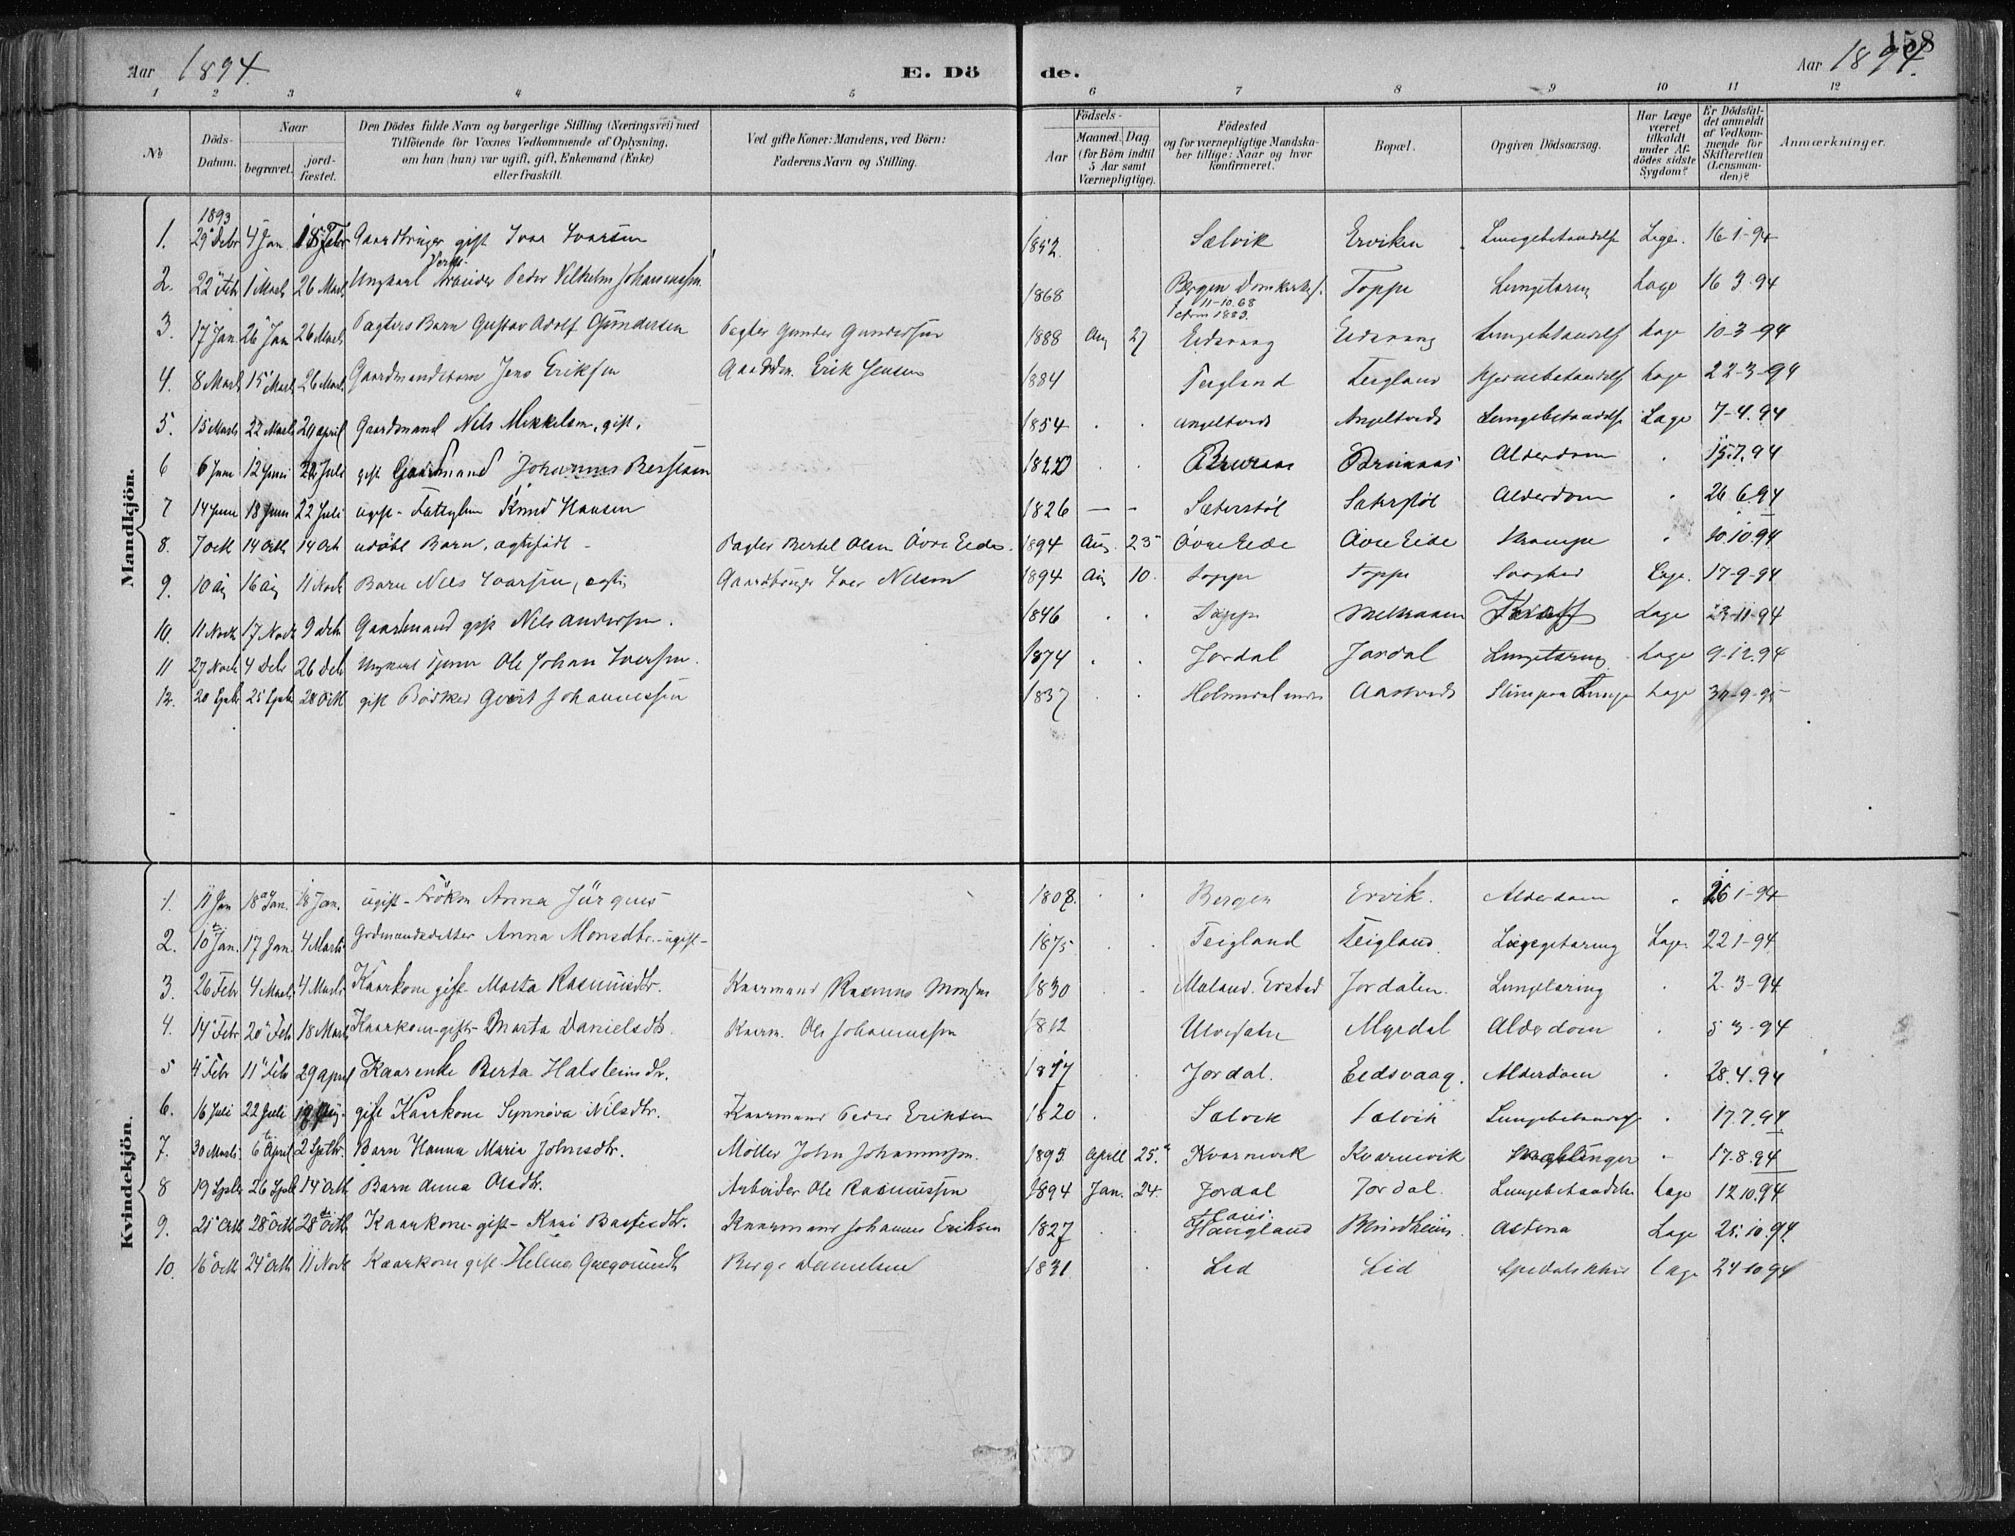 158
Aar 1894. E. Dö de. Aar 1894.
1 2 3 4 5 6 7 8 9 10 11 12
No
Döds-Datum.
Naar
begravet.
jord-fæstet.
Den Dödes fulde Navn og borgerlige Stilling (Næringsvei) med
Tilföiende for Voxnes Vedkommende af Oplysning,
om han (hun) var ugift, gift, Enkemand (Enke)
eller fraskilt.
Ved gifte Koner: Mandens, ved Börn:
Faderens Navn og Stilling.
Födsels-
Aar
Maaned. Dag
(for Börn indtil
5 Aar samt
Værnepligtige).
Födested
og for værnepligtige Mandska-
ber tillige: Naar og hvor
konfirmeret.
Bopæl.
Opgiven Dödsaarsag.
Har Læge
været
tilkaldt
under Af-
dödes sidste
Sygdom?
Er Dödsfal-
det anmeldt
af Vedkom-
mende for
Skifteretten
(Lensman-
den)?
Anmærkninger.
Mandkjön.
1893
1. 29 Debr 4 Jan 18 Febr Gaardbruger gift Ivar Ivarsen 1852 Sælvik Erviken Lungebetændelse Læge. 16-1-94
2. 22 Feb 1 Marts 26 Marts Ungkarl Arbeider Peder Vilhelm Johannessen 1868 Bergen Domkirkes. Toppe Lungetæring Læge 16 3-94
f 11-10.68
3. 17 Jan. 26 Jan 26 Marts Pagters Barn Gustav Adolf Gundersen Pagter Gunder Gundersen 1888 Aug 27 Eidsvaag Eidsvaag Lungebetændelse Læge 10-3-94
4. 8 Marts 15 Marts 26 Marts Gaardmandsbarn Jens Eriksen Gaardm. Erik Jensen 1884 Teigland Teigland Hjernebetændelse Læge 22-3-94
5. 15 Marts 22 Marts 29 april Gaardmand Nils Mikkelsen, gift. 1854 Angeltveds Angeltveds Lungebetændelse Læge 7-4.94
6 6 Juni 12 Juni 22 Juli gift Gaardmand Johannes Bersten 1820 Bruraas Bruraas Alderdom 15.7.94
7 14 Juni 18 Juni 22 Juli ugift Fattiglem Knud Hansen 1826 Sæterstøl Sæterstøl Alderdom 26 6.94
8. 7 Octb 14 Octb 14 Oct udöbt Barn, ægtefødt Pagter Bertel Olsen Övre Eide. 1894 Aug. 23 Övre Eide Övre Eide Krampe 10.10.94
9. 10 Aug 16 Aug 11 Novb Barn Nils Ivarsen, ægte Gaardbruger Iver Nilsen 1894 Aug 10. Toppe Toppe Svaghed Læge. 17-9-94
10. 11 Novb 17 Novb 9 Deb Gaardmand gift Nils Andersen. 1846 Toppe Mellraaen Kræft Læge 23-11-94
11 27 Novb 4 Deb 26 Deb Ungkarl Tjener Ole Johan Iversen. 1874 Jordal Jordal Lungetæring Læge 9-12.94
12. 20 Septb 25 Septb 28 Octb gift Bödker Gvert Johannessen 1837 Aastveds Læge
Kvindekjön.
1. 11 Jan 18 Jan. 28 Jan. ugift Fröken Anna Jürgens 1808. Bergen Ervik. Alderdom 26 1-94
2. 10 Jan. 17 Jan. 4 Marts Grdmandsdatter Anna Monsdtr. ugift 1875 Teigland Teigland. Lungetæring Læge. 22 1-94
3. 26 Febr 4 Marts 4 Marts Kaarkone gift Marta Rasmusdtr. Kaarmand Rasmus Monsen 1830 Maland. Erstad Jordalen. Lungetæring 2-3-94
4. 14 Febr 20 Feb 18 Marts Kaarkone-gift Marta Danielsdtr. Kaarm. Ole Johannessen 1812 Ulvesæter Myrdal Alderdom 5 3-94
5 4 Febr 11 Feb 29 april Kaarenke Berta Halsteinsdtr. 1817 Jordal. Eidsvaag. Alderdom 28.4.94
6. 16 Juli 22 Juli 19 Aug. gift Kaarkone Synnöva Nilsdtr. Kaarmand Peder Eriksen 1820 Sælvik Sælvik Lungebetændelse 17.7.94
7. 30 Marts 6 April 2 Septbr. Barn Hanna Maria Johnsdtr. Möller John Johannessen. 1893. April 25. Kvarnevik Kvarnevik Mæslinger 17-8.94
8 19 Septb 26 Septb 14 Octb Barn Anna Olsdtr. Arbeider Ole Rasmussen 1894 Jan. 24. Jordal Jordal. Lungebetændelse Læge 12 10.94
9. 21 Octb 28 Octb 28 Octb. Kaarkone-gift Kari Bastesdtr. Kaarmand Johannes Eriksen 1827 Haus: Haugland Mindheim Astma Læge 25.10.94.
10. 16 Octb 24 Octb 11 Novb Kaarkone gift Helena Gregoriusdtr Berge Danielsen 1831 Lid Lid Spedalskhed Læge 24-10.94